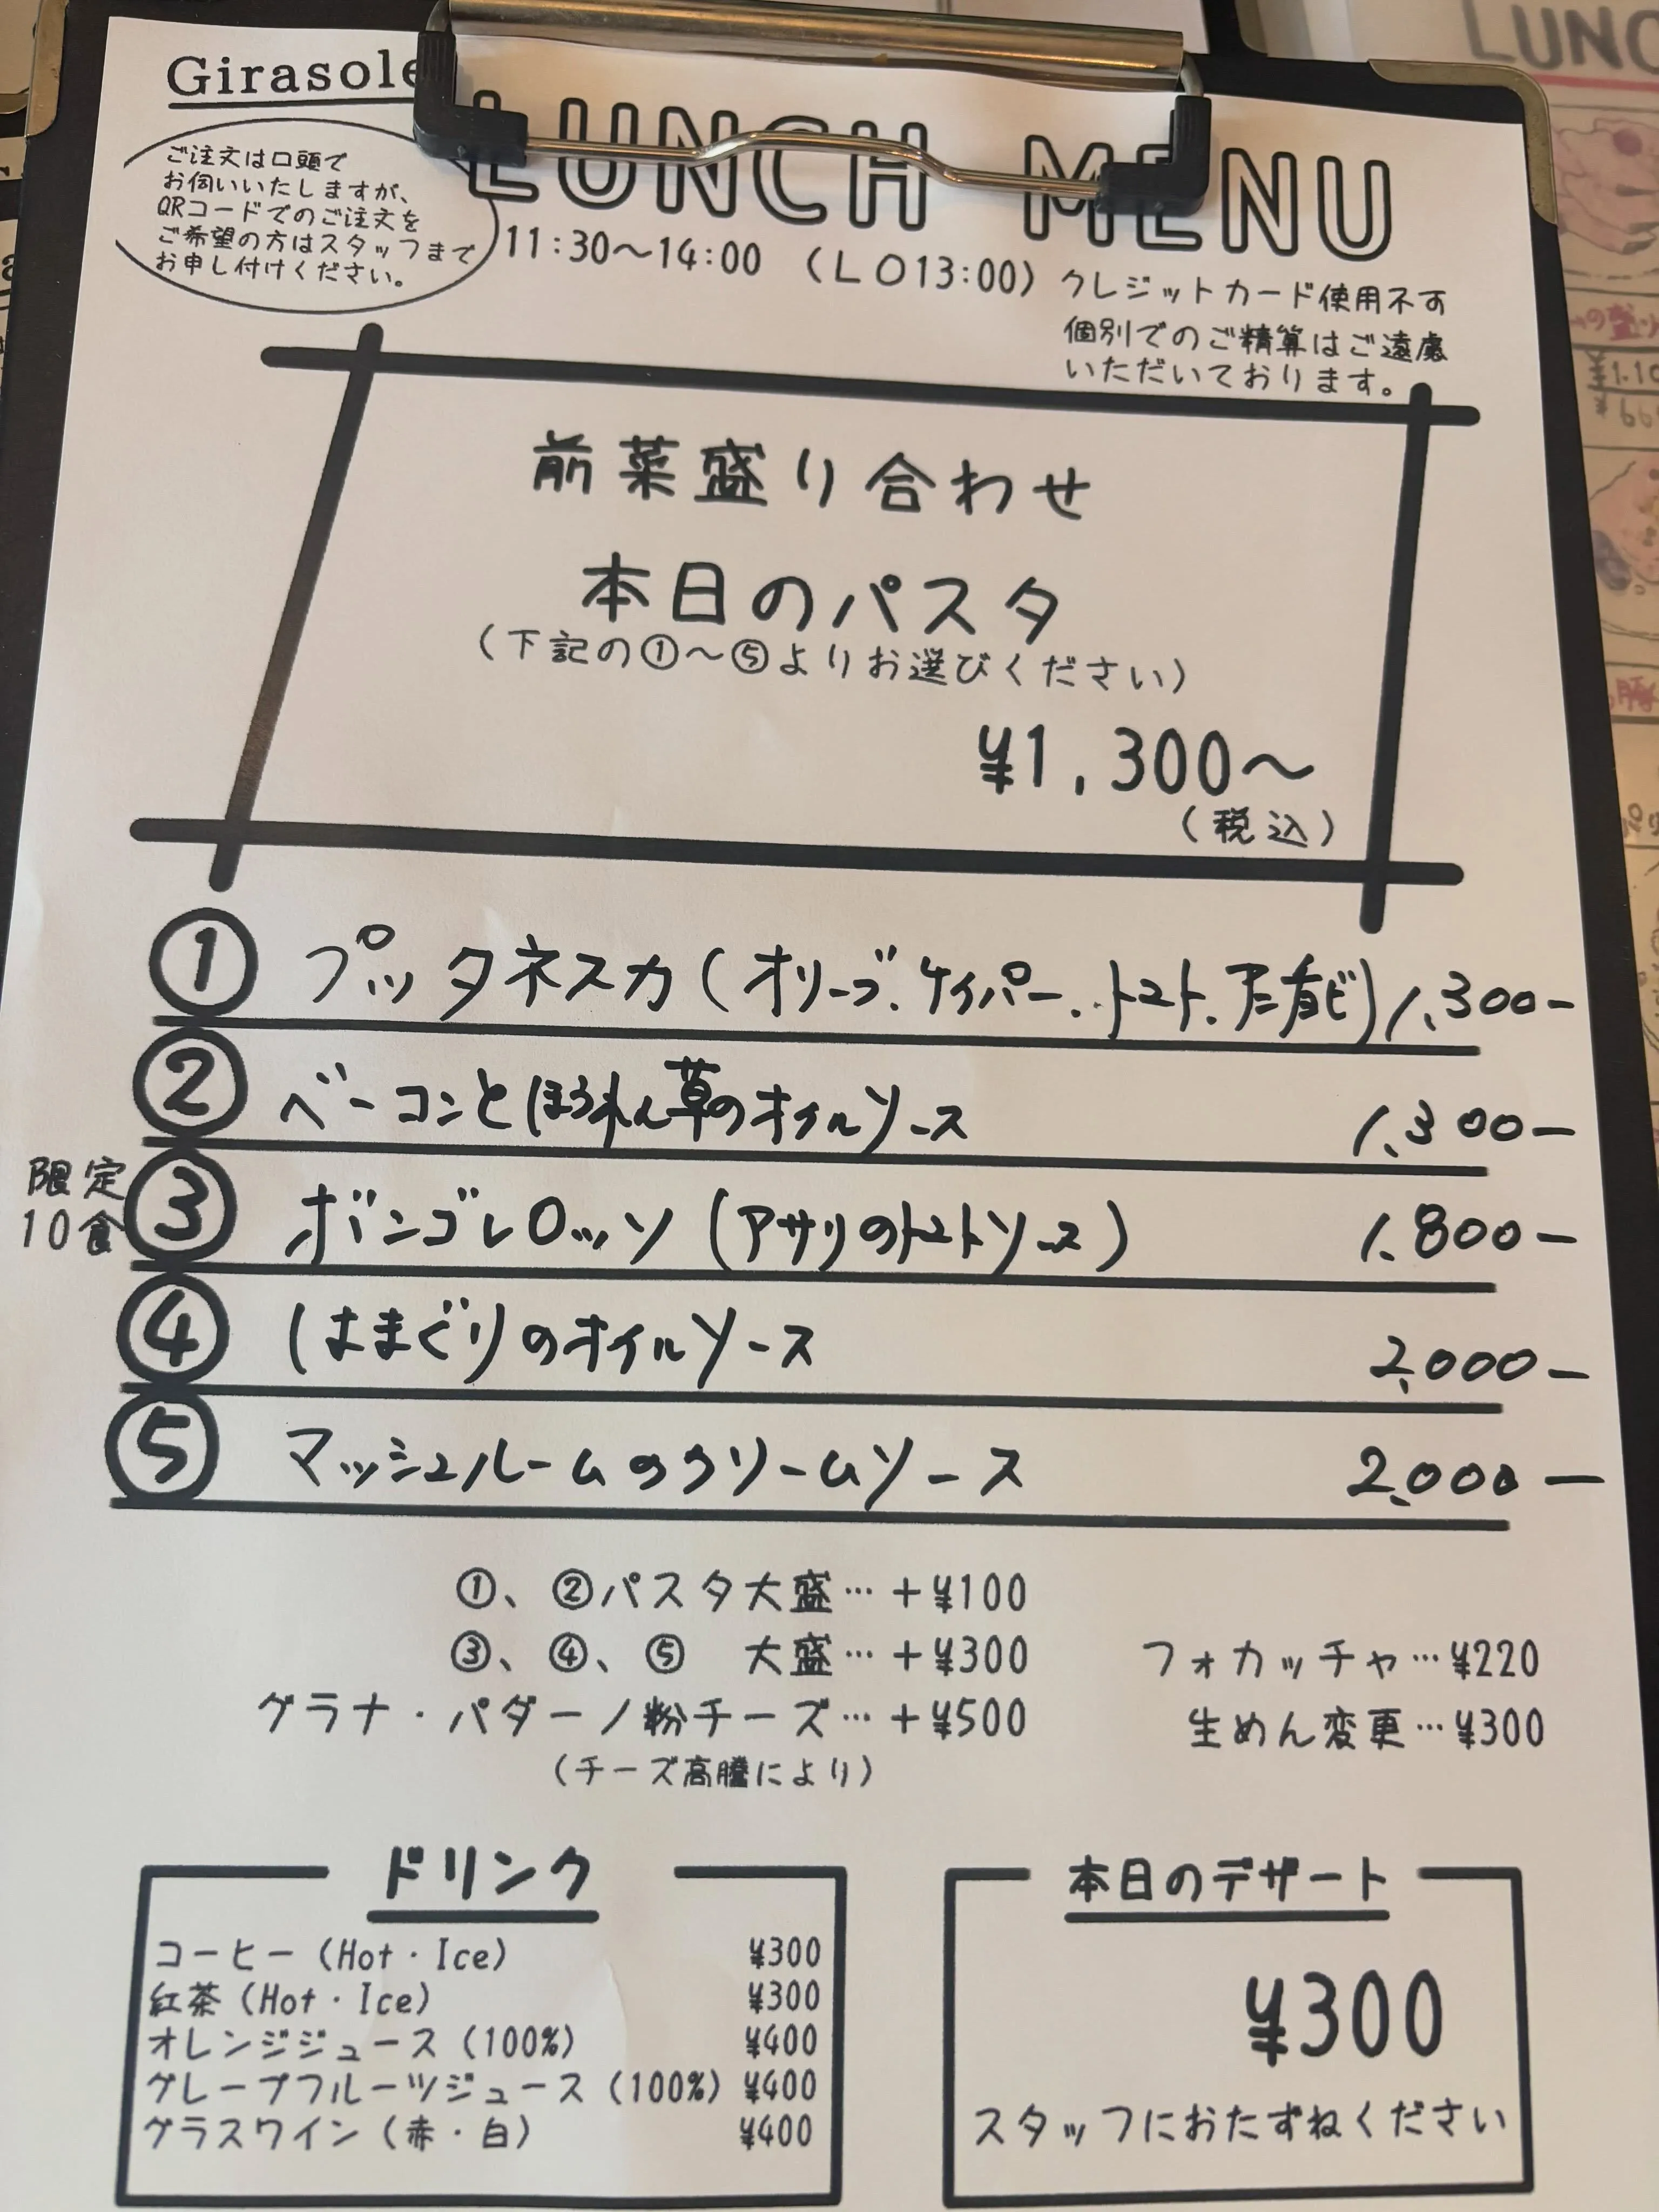 Girasole
LUNCH MENU
ご注文は口頭で
お伺いいたしますが、
QRコードでのご注文を
ご希望の方はスタッフまで
お申し付けください。
11:30～14:00 （LO13:00）
クレジットカード使用不可
個別でのご精算はご遠慮
いただいております。
前菜盛り合わせ
本日のパスタ
（下記の①～⑤よりお選びください）
¥1,300～
（税込）
① プッタネスカ（オリーブ、ケイパー、トマト、） 1,300-
② ベーコンとほうれん草のオイルソース 1,300-
限定
10食
③ ボンゴレロッソ（アサリのトマトソース） 1,800-
④ はまぐりのオイルソース 2,000-
⑤ マッシュルームのクリームソース 2,000-
①、②パスタ大盛…＋¥100
③、④、⑤ 大盛…＋¥300
グラナ・パダーノ粉チーズ…＋¥500
（チーズ高騰により）
フォカッチャ…¥220
生めん変更…¥300
ドリンク
コーヒー（Hot・Ice） ¥300
紅茶（Hot・Ice） ¥300
オレンジジュース（100%） ¥400
グレープフルーツジュース（100%） ¥400
グラスワイン（赤・白） ¥400
本日のデザート
¥300
スタッフにおたずねください
LUNC